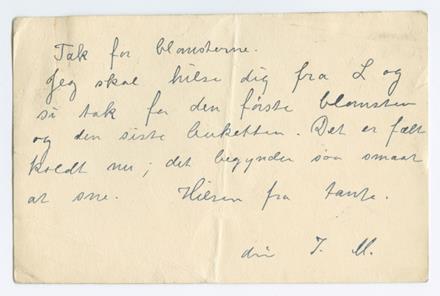 Tak for blomsterne.
Jeg skal hilse dig fra L og
si tak for den første blomsten
og den siste buketten. Det er fælt
koldt nu; det begynder saa smaat
at sne. Hilsen fra tante.
din J. M.